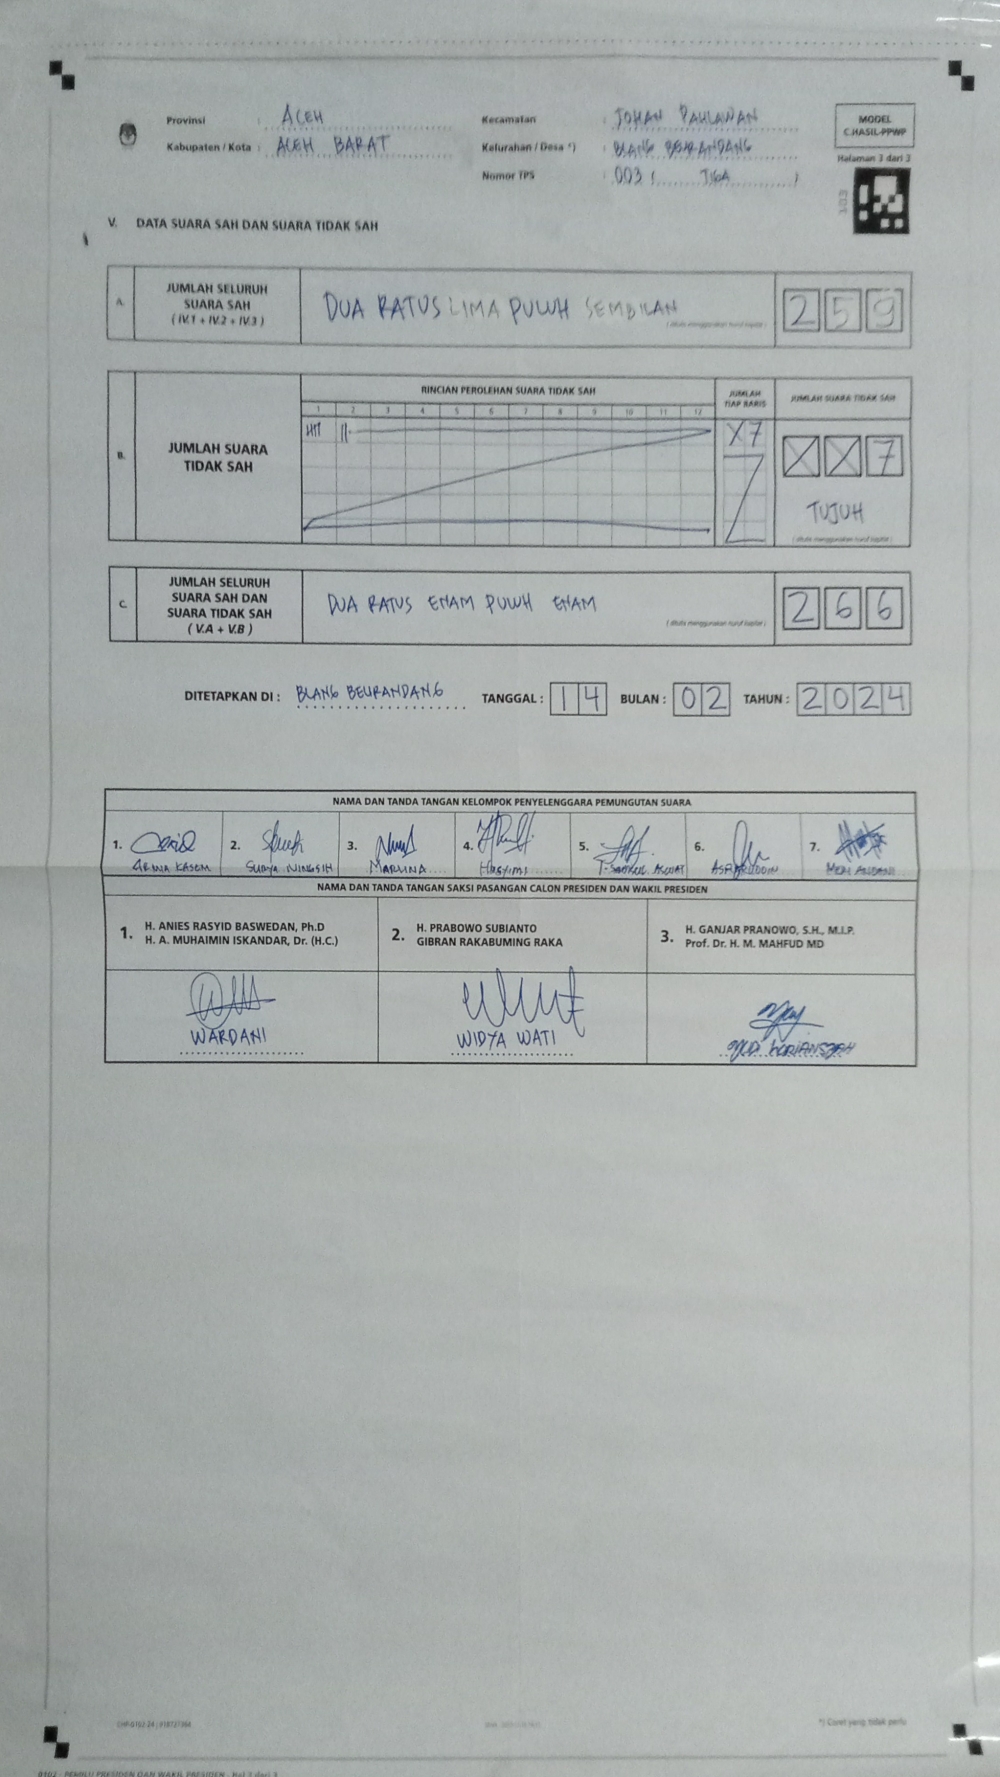 Provinsi : ACEH
Kabupaten / Kota : ACEH BARAT
Kecamatan : JOHAN PAHLAWAN
Kelurahan / Desa *) : BLANG BEURANDANG
Nomor TPS : 003 ( TIGA )
MODEL
C.HASIL-PPWP
Halaman 3 dari 3
V. DATA SUARA SAH DAN SUARA TIDAK SAH
A. JUMLAH SELURUH
SUARA SAH
( IV.1 + IV.2 + IV.3 )
DUA RATUS LIMA PULUH SEMBILAN
( ditulis menggunakan huruf kapital )
2 5 9
B. JUMLAH SUARA
TIDAK SAH
RINCIAN PEROLEHAN SUARA TIDAK SAH
1 2 3 4 5 6 7 8 9 10 11 12
JUMLAH
TIAP BARIS
X 7
JUMLAH SUARA TIDAK SAH
X X 7
TUJUH
( ditulis menggunakan huruf kapital )
C. JUMLAH SELURUH
SUARA SAH DAN
SUARA TIDAK SAH
( V.A + V.B )
DUA RATUS ENAM PULUH ENAM
( ditulis menggunakan huruf kapital )
2 6 6
DITETAPKAN DI : BLANG BEURANDANG TANGGAL : 14 BULAN : 02 TAHUN : 2024
NAMA DAN TANDA TANGAN KELOMPOK PENYELENGGARA PEMUNGUTAN SUARA
1. 2. 3. 4. 5. 6. 7.
SURYA NINGSIH MARLINA HASYIMI ASFARUDDIN
NAMA DAN TANDA TANGAN SAKSI PASANGAN CALON PRESIDEN DAN WAKIL PRESIDEN
1. H. ANIES RASYID BASWEDAN, Ph.D
H. A. MUHAIMIN ISKANDAR, Dr. (H.C.)
2. H. PRABOWO SUBIANTO
GIBRAN RAKABUMING RAKA
3. H. GANJAR PRANOWO, S.H., M.I.P.
Prof. Dr. H. M. MAHFUD MD
WARDANI
WIDYA WATI
*) Coret yang tidak perlu